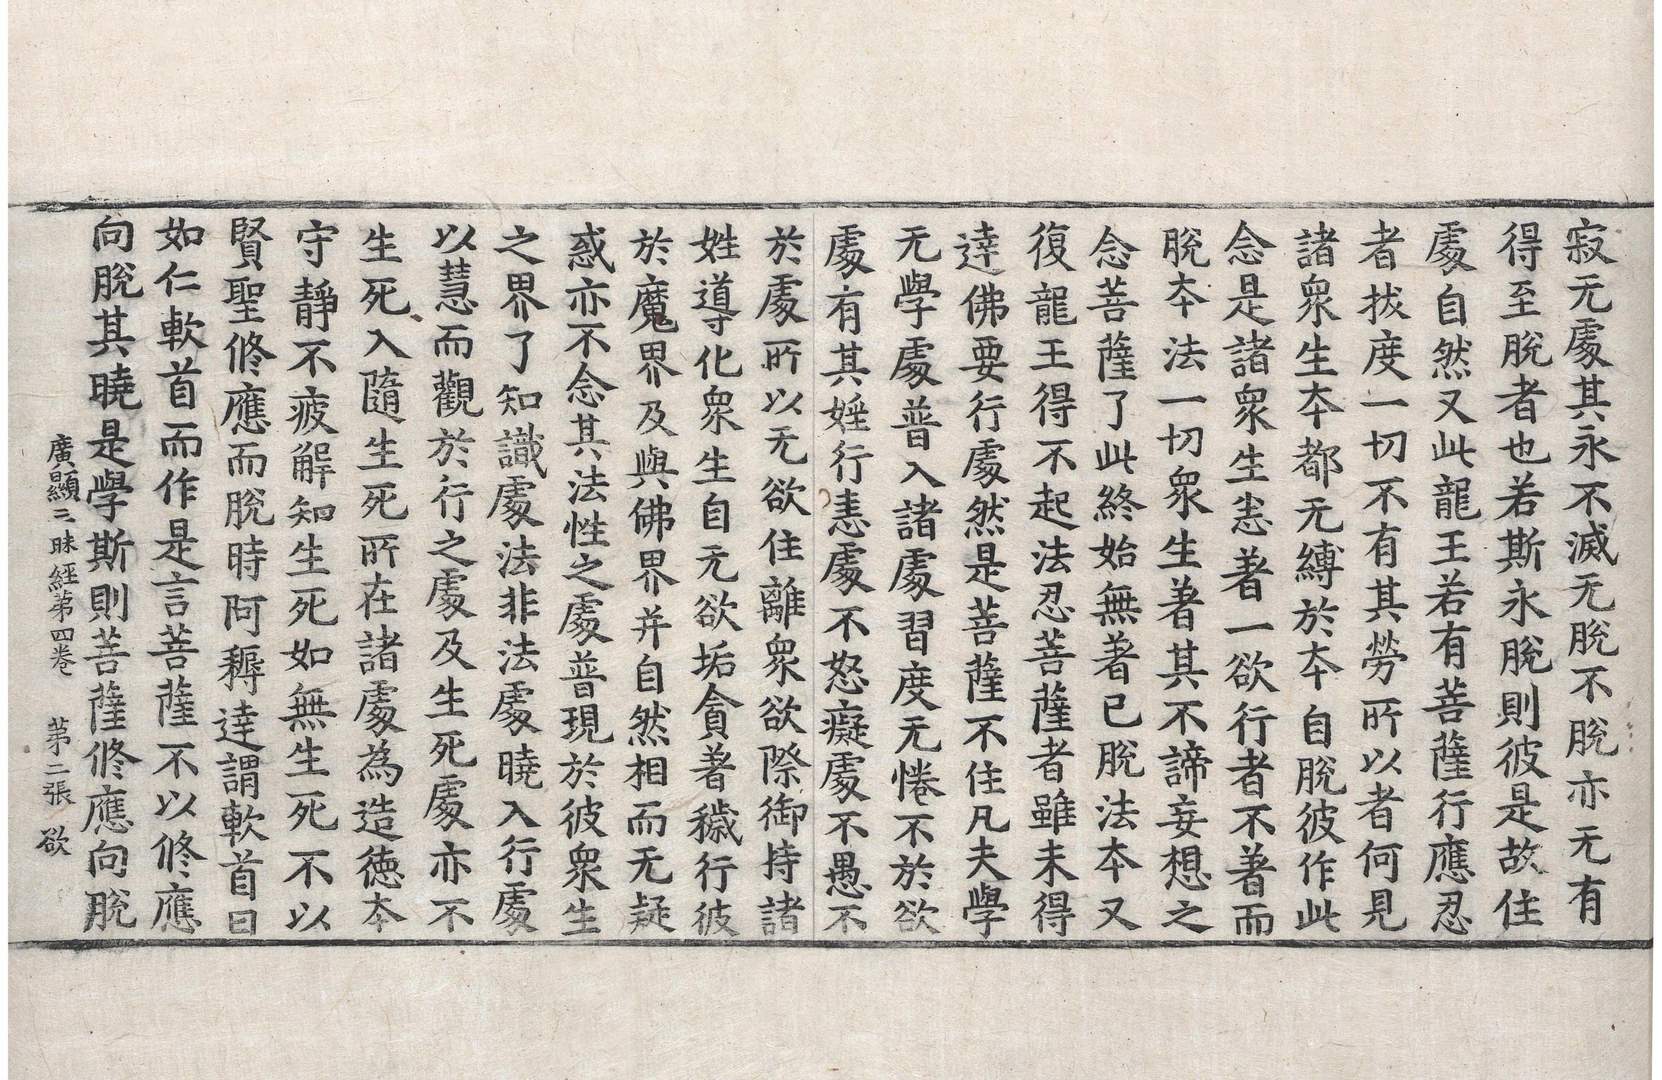 寂无處其永不滅无脫不脫亦无有
得至脫者也若斯永脫則彼是故住
處自然又此龍王若有菩薩行應忍
者拔度一切不有其勞所以者何見
諸衆生本都无縛於本自脫彼作此
念是諸衆生恚著一欲行者不著而
脫本法一切衆生著其不諦妄想之
念菩薩了此終始無著已脫法本又
復龍王得不起法忍菩薩者雖未得
逹佛要行處然是菩薩不住凡夫學
无學處普入諸處習度无惓不於欲
處有其婬行恚處不怒癡處不愚不
於處所以无欲住離衆欲際御持諸
姓導化衆生自无欲垢貪著穢行彼
於魔界及與佛界并自然相而无疑
惑亦不念其法性之處普現於彼衆生
之界了知識處法非法處曉入行處
以慧而觀於行之處及生死處亦不
生死入隨生死所在諸處為造德本
守靜不疲解知生死如無生死不以
賢聖修應而脫時阿耨達謂軟首曰
如仁軟首而作是言菩薩不以修應
向脫其曉是學斯則菩薩修應向脫
廣顯三昧經第四卷 第二張 欲